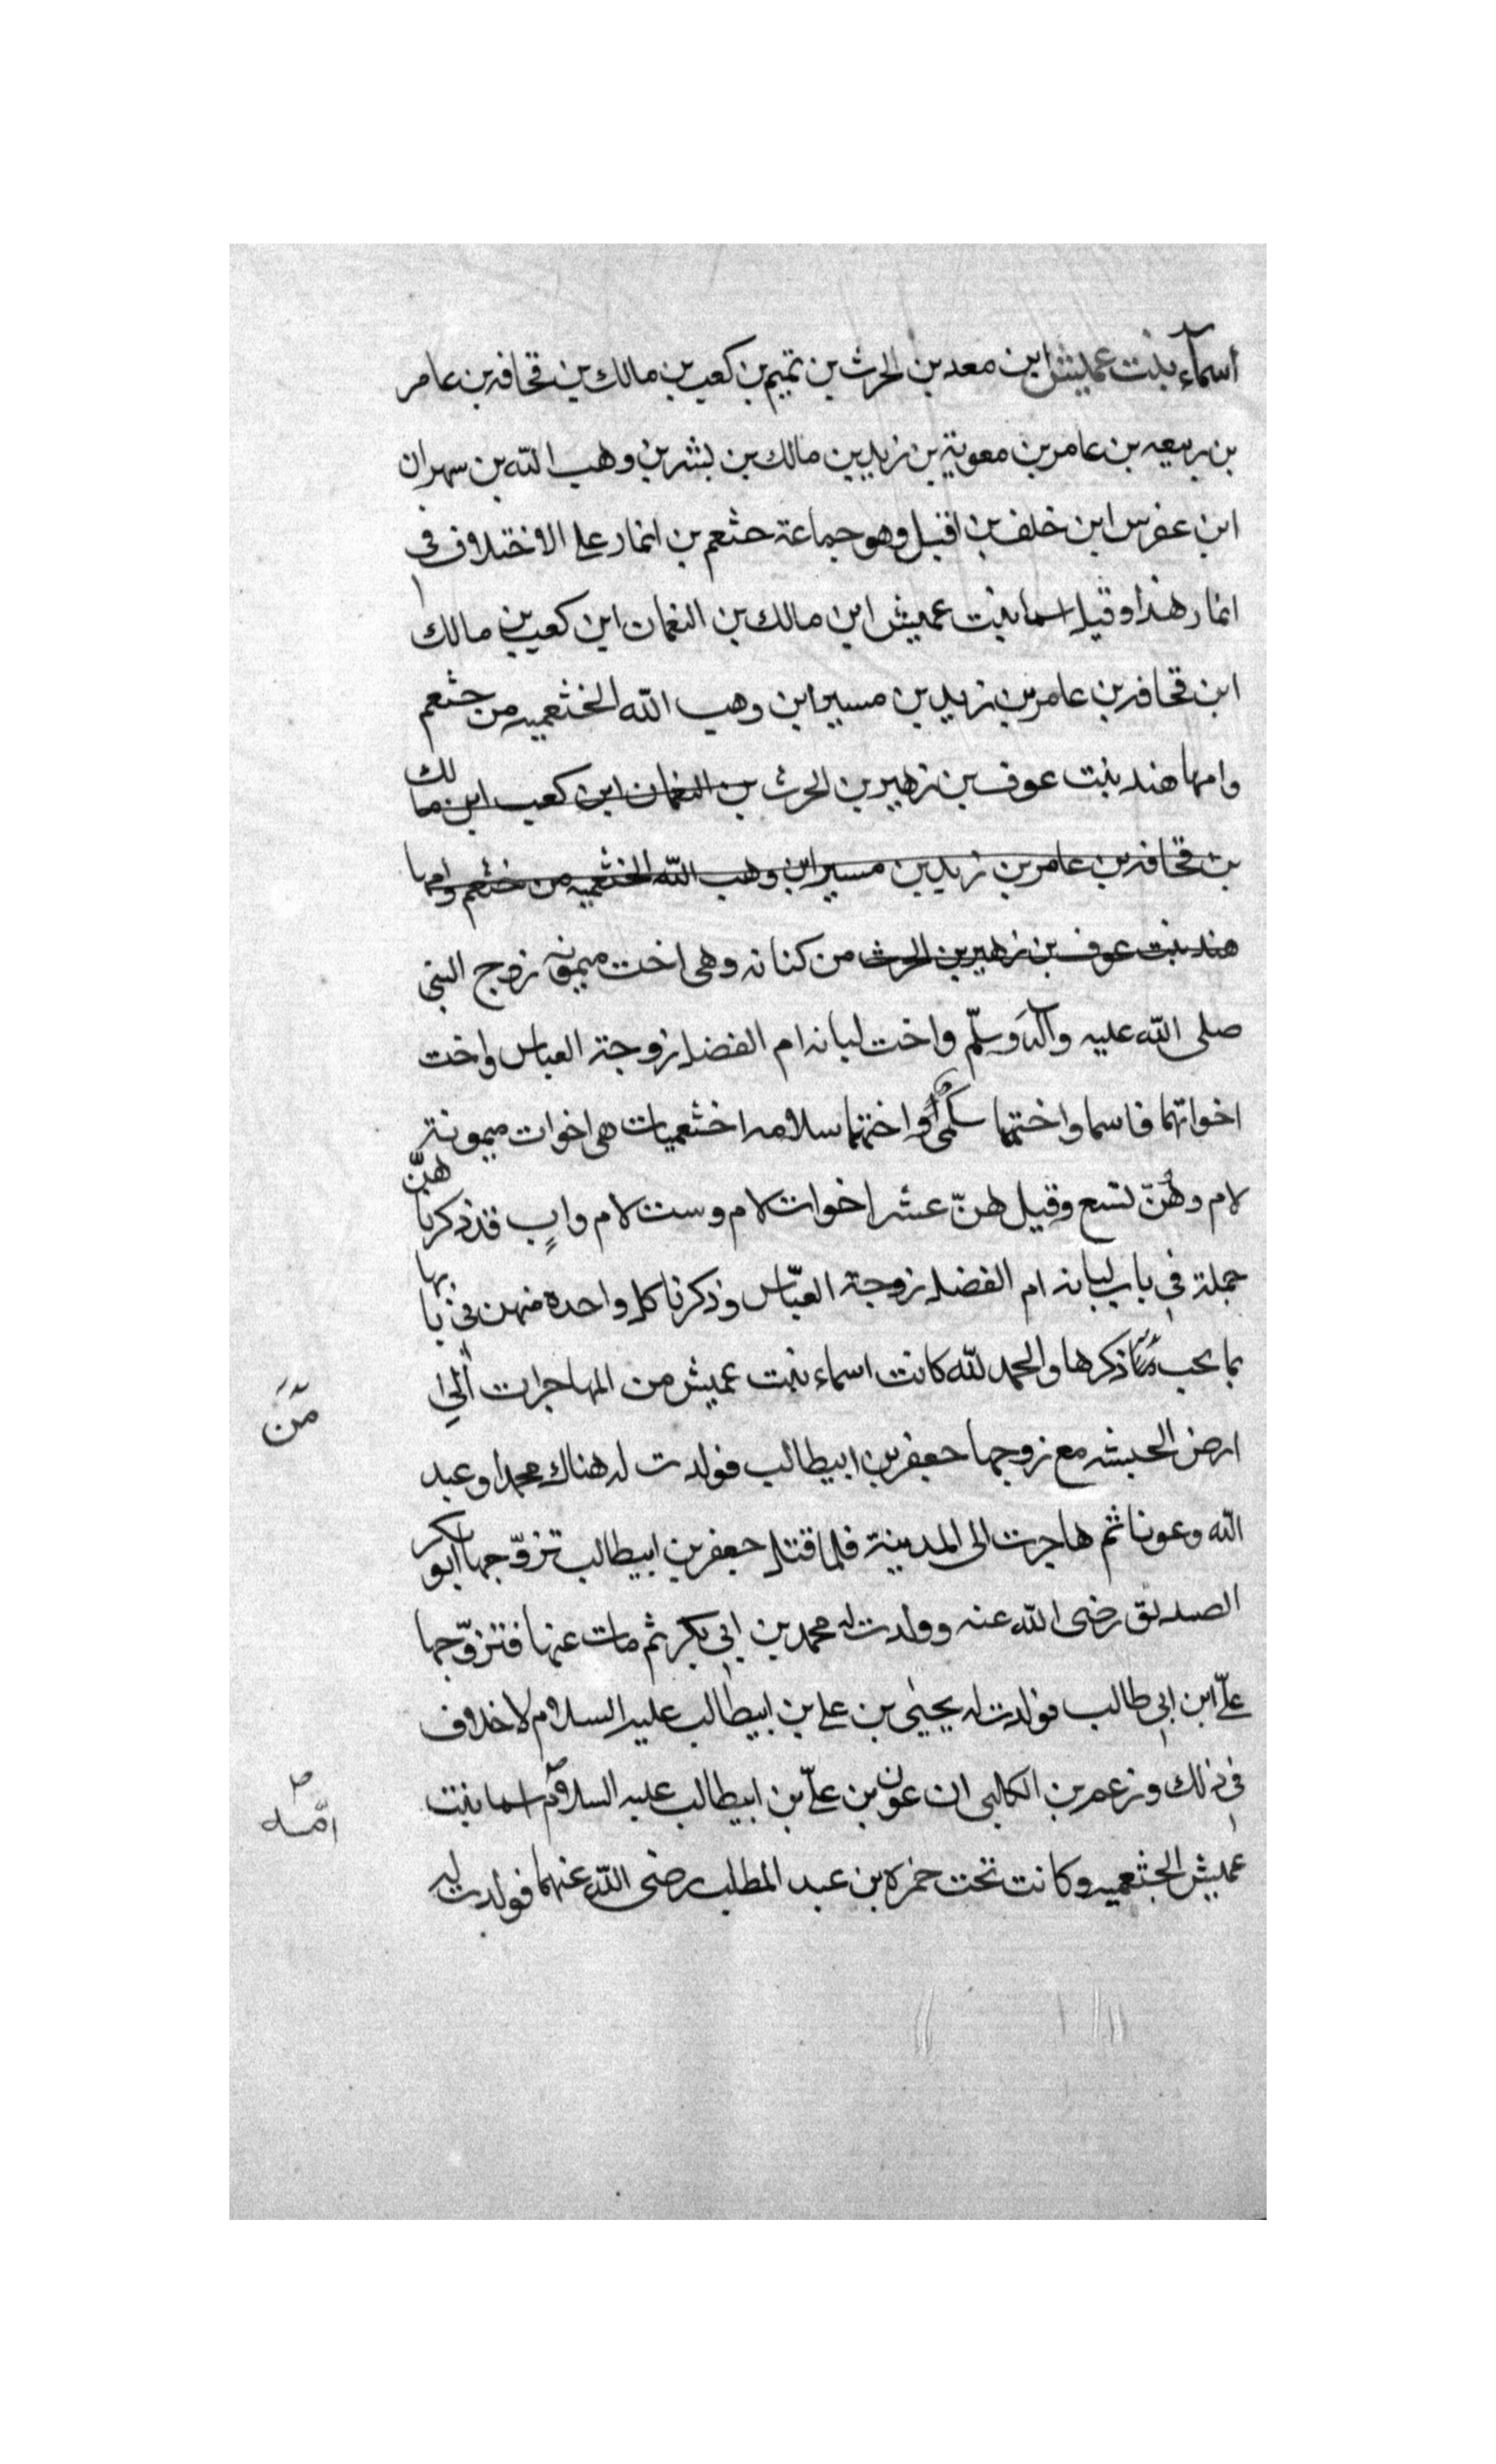 اسماء بنت عميش ابن معد بن الحرث بن تميم بن كعب بن مالك بن قحافه بن عامر
بن ربيعه بن عامر بن معوية بن زيد بن مالك بن بشر بن وهب الله بن سهران
ابن عفرس ابن خلف بن اقيل وهو جماعة خثعم بن انمار على الاختلاف في
انمار هذا وقيل اسما بنت عميش ابن مالك بن النعمان ابن كعب بن مالك
ابن قحافه بن عامر بن زيد بن مسير ابن وهب الله الخثعميه من خثعم
وامها هند بنت عوف بن زهير بن الحرث بن النعمان ابن كعب ابن مالك
بن قحافه بن عامر بن زيد بن مسير ابن وهب الله الخثعميه من خثعم وامها
هند بنت عوف بن زهير بن الحرث من كنانه وهى اخت ميمونه زوج النبى
صلى الله عليه وآله وسلّم واخت لبانه ام الفضل زوجة العباس واخت
اخواتهما فاسما واختهما سلمى واختهما سلامه اخثعميات هى اخوات ميمونة
لام وهُنّ تسع وقيل هنّ عشر اخوات لام وست لام وابٍ قد ذكرناهنّ
جملة في باب لبانه ام الفضل زوجة العبّاس وذكرنا كل واحدة منهن في بابها
بما يجب ذكرها والحمد لله كانت اسماء بنت عميش من المهاجرات الى
مَن
ارض الحبشه مع زوجها جعفر بن ابيطالب فولدت له هناك محمدا وعبد
الله وعونا ثم هاجرت الى المدينة فلما قتل جعفر بن ابيطالب تزوّجها ابو بكر
الصديق رضى الله عنه وولدت له محمد بن ابي بكر ثم مات عنها فتزوّجها
علىّ ابن ابي طالب فولدت له يحيى بن على بن ابيطالب عليه السلام لا خلاف
في ذلك وزعم بن الكالبى ان عون بن علىّ بن ابيطالب عليه السلام اسما بنت
امّه
عميش الخثعميه وكانت تحت حمزه بن عبد المطلب رضى الله عنهما فولدت له